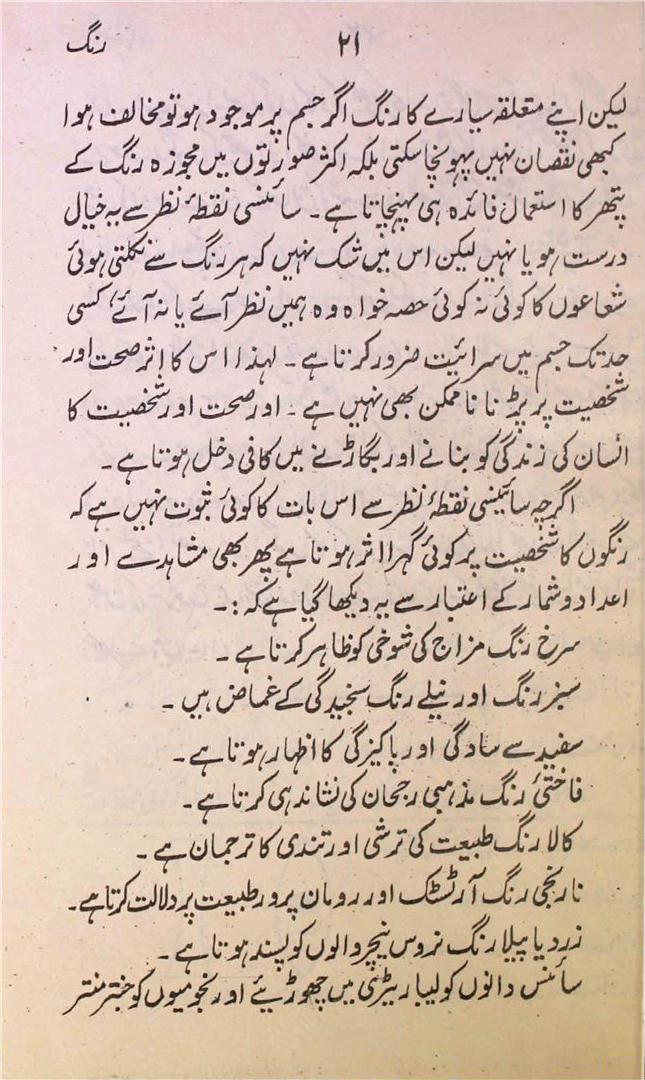 رنگ
۲۱
لیکن اپنے متعلقہ سیارے کا رنگ اگر جسم پر موجود ہو تو مخالف ہوا
کبھی نقصان نہیں پہونچا سکتی بلکہ اکثر صورتوں میں مجوزہ رنگ کے
پتھر کا استعمال فائدہ ہی پہنچاتا ہے۔ سائنسی نقطۂ نظر سے یہ خیال
درست ہو یا نہیں لیکن اس میں شک نہیں کہ ہر رنگ سے نکلتی ہوئی
شعاعوں کا کوئی نہ کوئی حصہ خواہ وہ ہمیں نظر آئے یا نہ آئے، کسی
حد تک جسم میں سرائیت ضرور کرتا ہے۔ لہذا اس کا اثر صحت اور
شخصیت پر پڑنا ناممکن بھی نہیں ہے۔ اور صحت اور شخصیت کا
انسان کی زندگی کو بنانے اور بگاڑنے میں کافی دخل ہوتا ہے۔
اگرچہ سائینسی نقطۂ نظر سے اس بات کا کوئی ثبوت نہیں ہے کہ
رنگوں کا شخصیت پر کوئی گہرا اثر ہوتا ہے پھر بھی مشاہدے اور
اعداد و شمار کے اعتبار سے یہ دیکھا گیا ہے کہ:۔
سرخ رنگ مزاج کی شوخی کو ظاہر کرتا ہے۔
سبز رنگ اور نیلے رنگ سنجیدگی کے غماض ہیں۔
سفید سے سادگی اور پاکیزگی کا اظہار ہوتا ہے۔
فاختئی رنگ مذہبی رجحان کی نشاندہی کرتا ہے۔
کالا رنگ طبیعت کی ترشی اور تندی کا ترجمان ہے۔
نارنجی رنگ آرٹسٹک اور رومان پرور طبیعت پر دلالت کرتا ہے۔
زرد یا پیلا رنگ نروس نیچر والوں کو پسند ہوتا ہے۔
سائنس دانوں کو لیباریٹری میں چھوڑیئے اور نجومیوں کو جنتر منتر